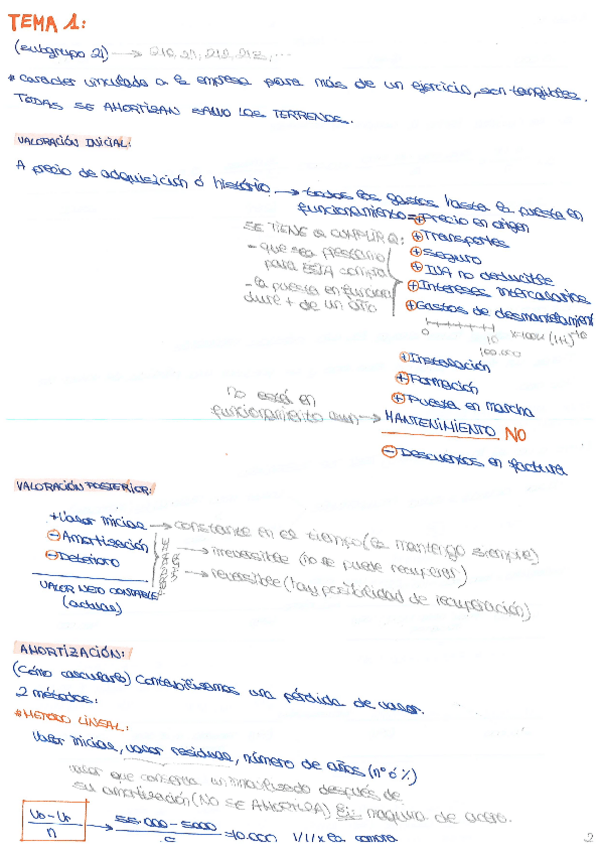 TEMA 1:
(subgrupo 21) → 210, 211, 212, 213, ...
* carácter vinculado a la empresa para más de un ejercicio, son tangibles.
TODAS SE AMORTIZAN SALVO LOS TERRENOS.
VALORACIÓN INICIAL:
A precio de adquisición ó histórico → todos los gastos hasta la puesta en
funcionamiento = ⊕ Precio en origen
SE TIENE Q CUMPLIR Q:
- que sea préstamo
para ESTA compra
- la puesta en funcion
dure + de un año
⊕ Transportes
⊕ Seguro
⊕ IVA no deducible
⊕ Intereses intercalarios
⊕ Gastos de desmantelamient
0 10 x 100k (1+i)^-10
100.000
⊕ Instalación
⊕ Formación
⊕ Puesta en marcha
no está en
funcionamiento aun → MANTENIMIENTO NO
⊖ Descuentos en factura
VALORACIÓN POSTERIOR:
+ Valor inicial → constante en el tiempo (la mantengo siempre)
⊖ Amortización → irreversible (no se puede recuperar)
⊖ Deterioro → reversible (hay posibilidad de recuperación)
PÉRDIDA DE
VALOR
VALOR NETO CONTABLE
(actual)
AMORTIZACIÓN:
(Cómo calcularlo) Contabilizamos una pérdida de valor.
2 métodos:
* METODO LINEAL:
Valor inicial, valor residual, número de años (nº ó %)
valor que conserva un inmovilizado después de
su amortización (NO SE AMORTIZA) Ej: maquina de acero.
Vo - Vr
n
→ 55.000 - 5000
5
= 10.000
1/1/x la compra
2